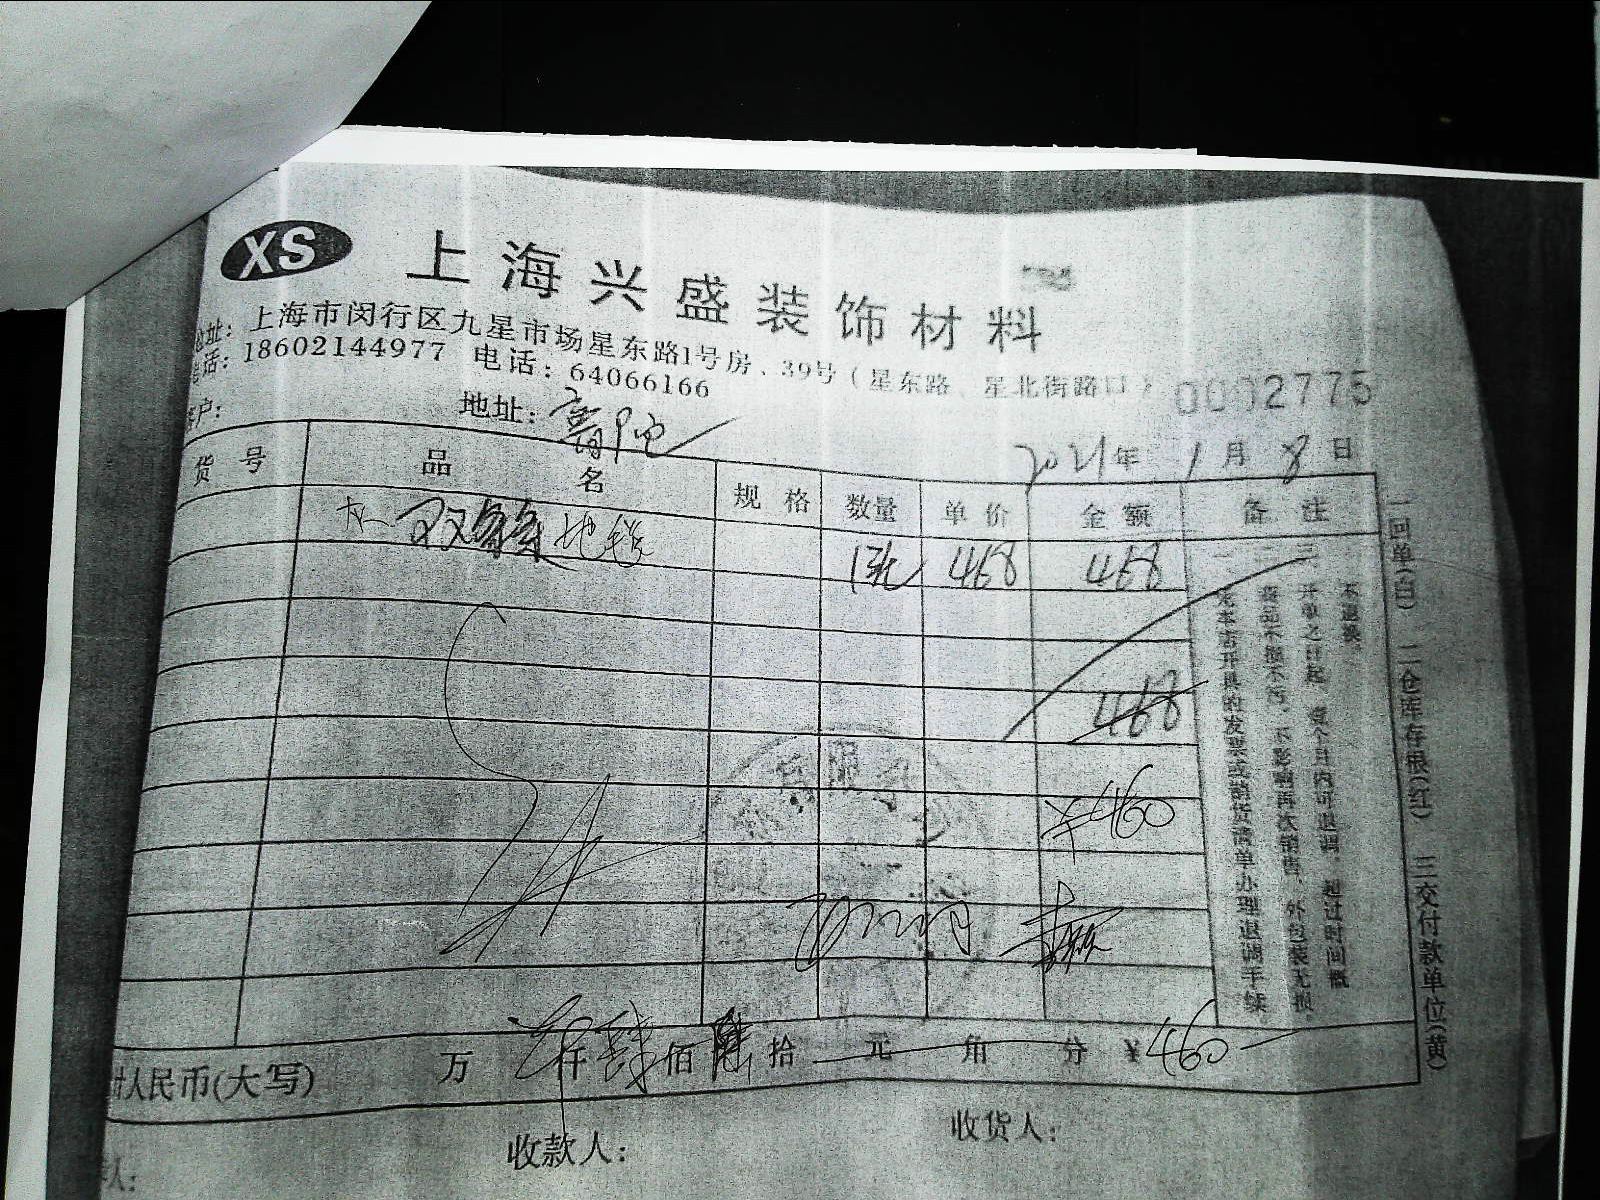 XS 上海兴盛装饰材料
地址：上海市闵行区九星市场星东路1号房、39号（星东路、星北街路口）
电话：18602144977 电话：64066166
0002775
客户： 地址：
2021年 1月 8日
货号 品名 规格 数量 单价 金额 备注
双 地 468 468
468
¥460
一、凭本店开具的发票或销货清单办理退调手续
二、商品不损不污，不影响再次销售，外包装无损
三、开单之日起，壹个月内可退调，超过时间概
不退换。
一回单(白) 二仓库存根(红) 三交付款单位(黄)
人民币(大写) 万 仟肆佰陆拾 元 角 分 ¥460
收款人： 收货人：